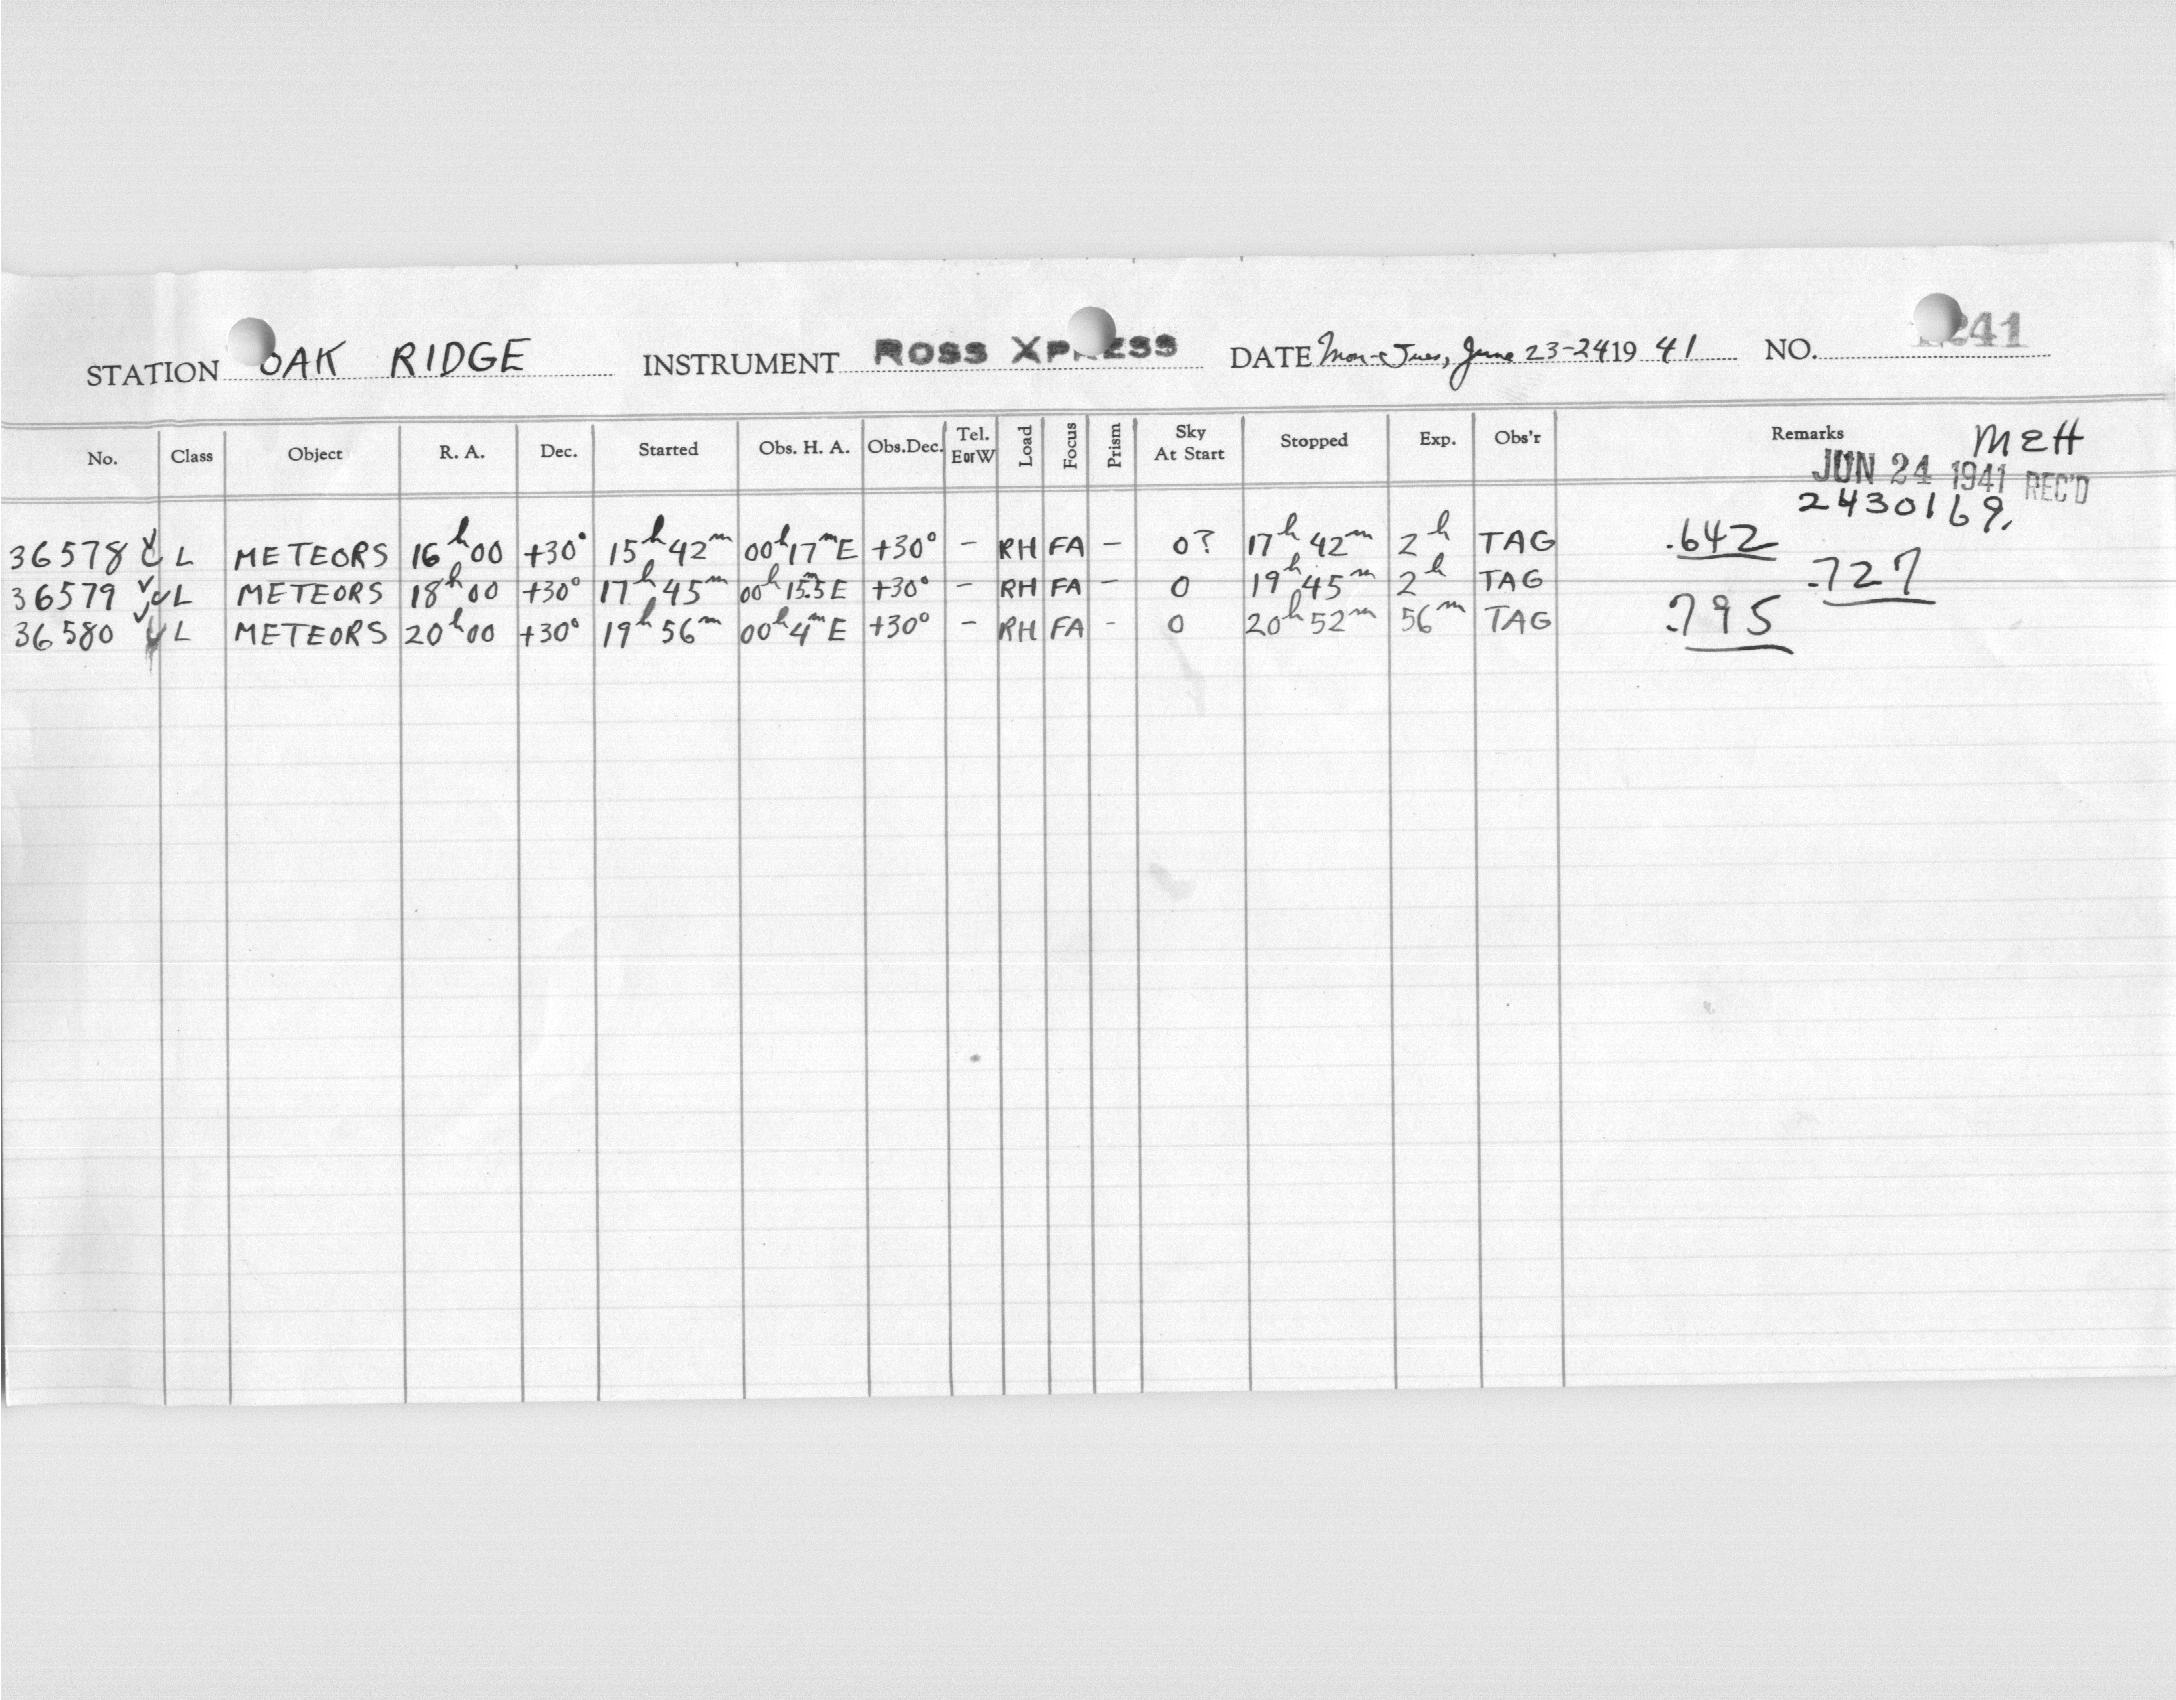 STATION OAK RIDGE INSTRUMENT ROSS XPRESS DATE Mon-Tues, June 23-24 19 41 NO. 241
No. Class Object R. A. Dec. Started Obs. H. A. Obs.Dec. Tel. E or W Load Focus Prism Sky At Start Stopped Exp. Obs'r Remarks MEH
JUN 24 1941 REC'D
2430169.
36578 L METEORS 16h00 +30° 15h42m 00h17mE +30° - RH FA - 0? 17h42m 2h TAG .642
36579 L METEORS 18h00 +30° 17h45m 00h15.5mE +30° - RH FA - 0 19h45m 2h TAG .727
36580 L METEORS 20h00 +30° 19h56m 00h4mE +30° - RH FA - 0 20h52m 56m TAG .795